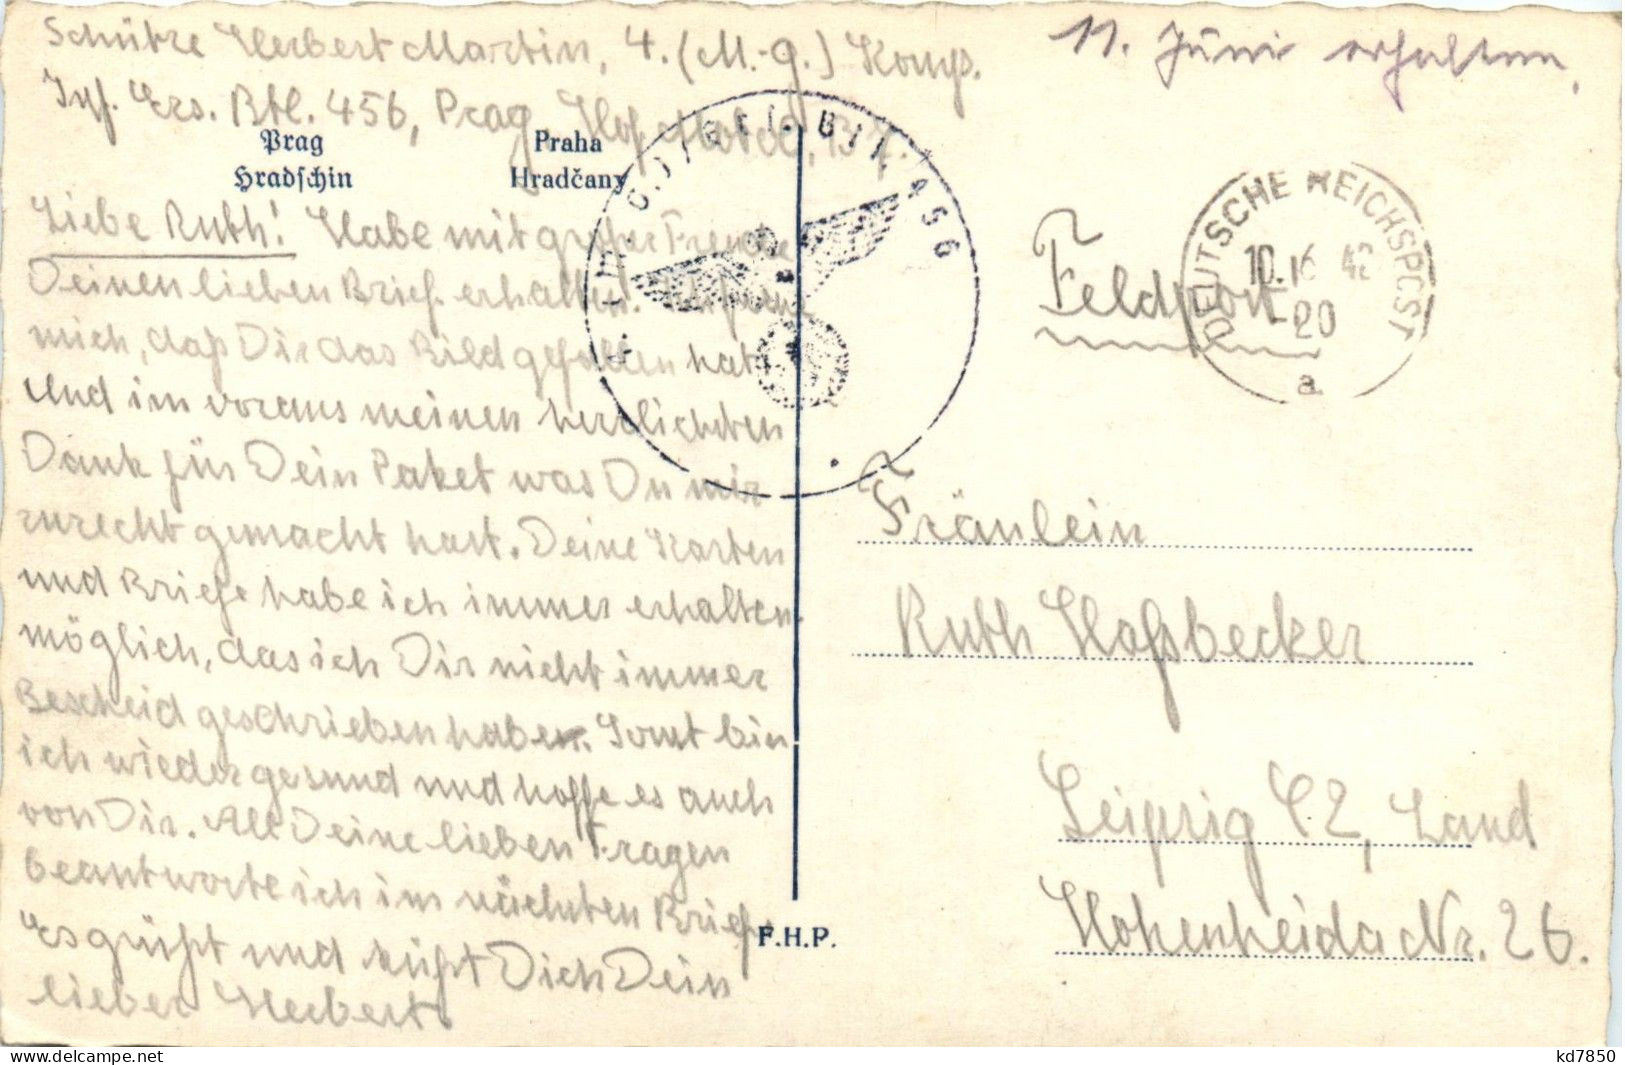 Schütze Herbert Martin, 4. (M.-g.) Komp.
Inf. Ers. Btl. 456, Prag
11. Juni erhalten.
Prag
Hradschin
Praha
Hradčany
Liebe Ruth! Habe mit großer Freude
Deinen lieben Brief erhalten.
mich, daß Dir das Bild gefallen hat.
Und im voraus meinen herzlichsten
Dank für Dein Paket was Du mir
zurecht gemacht hast. Deine Karten
und Briefe habe ich immer erhalten.
möglich, das ich Dir nicht immer
Bescheid geschrieben haben. Sonst bin
ich wieder gesund und hoffe es auch
von Dir. All Deine lieben Fragen
beantworte ich im nächsten Brief.
Es grüßt und küßt Dich Dein
lieber Herbert.
F.H.P.
456
DEUTSCHE REICHSPOST
20
a
Feldpost
Fräulein
Ruth Hoßbecker
Leipzig C2, Land
Hohenheida Nr. 26.
kd7850